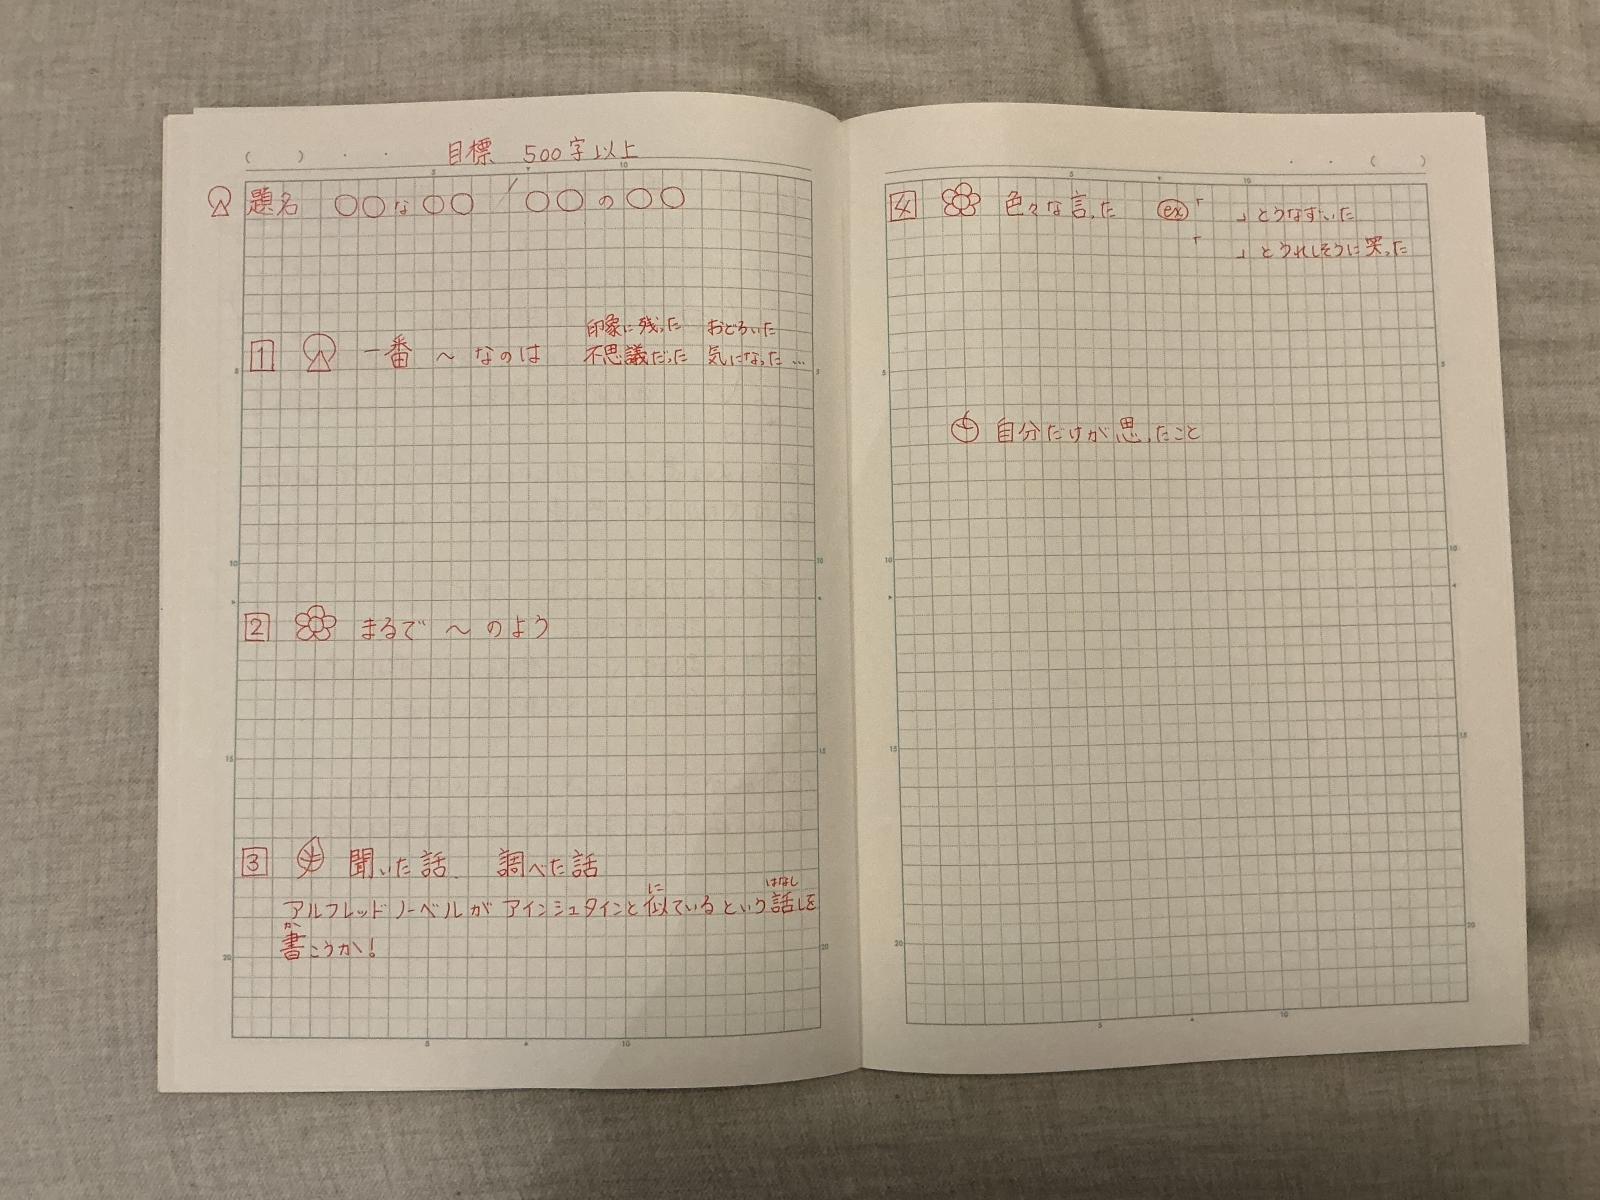 ( ) ・ ・ 目標 500字以上
題名 ○○な○○ / ○○の○○
1 一番 〜 なのは 印象に残った おどろいた
不思議だった 気になった…
2 まるで 〜 のよう
3 聞いた話、 調べた話
アルフレッドノーベルが アインシュタインと似ているという話しを
に はなし
書こうか!
か
・ ・ ( )
4 色々な言った ex 「 」とうなずいた
「 」とうれしそうに笑った
自分だけが思ったこと